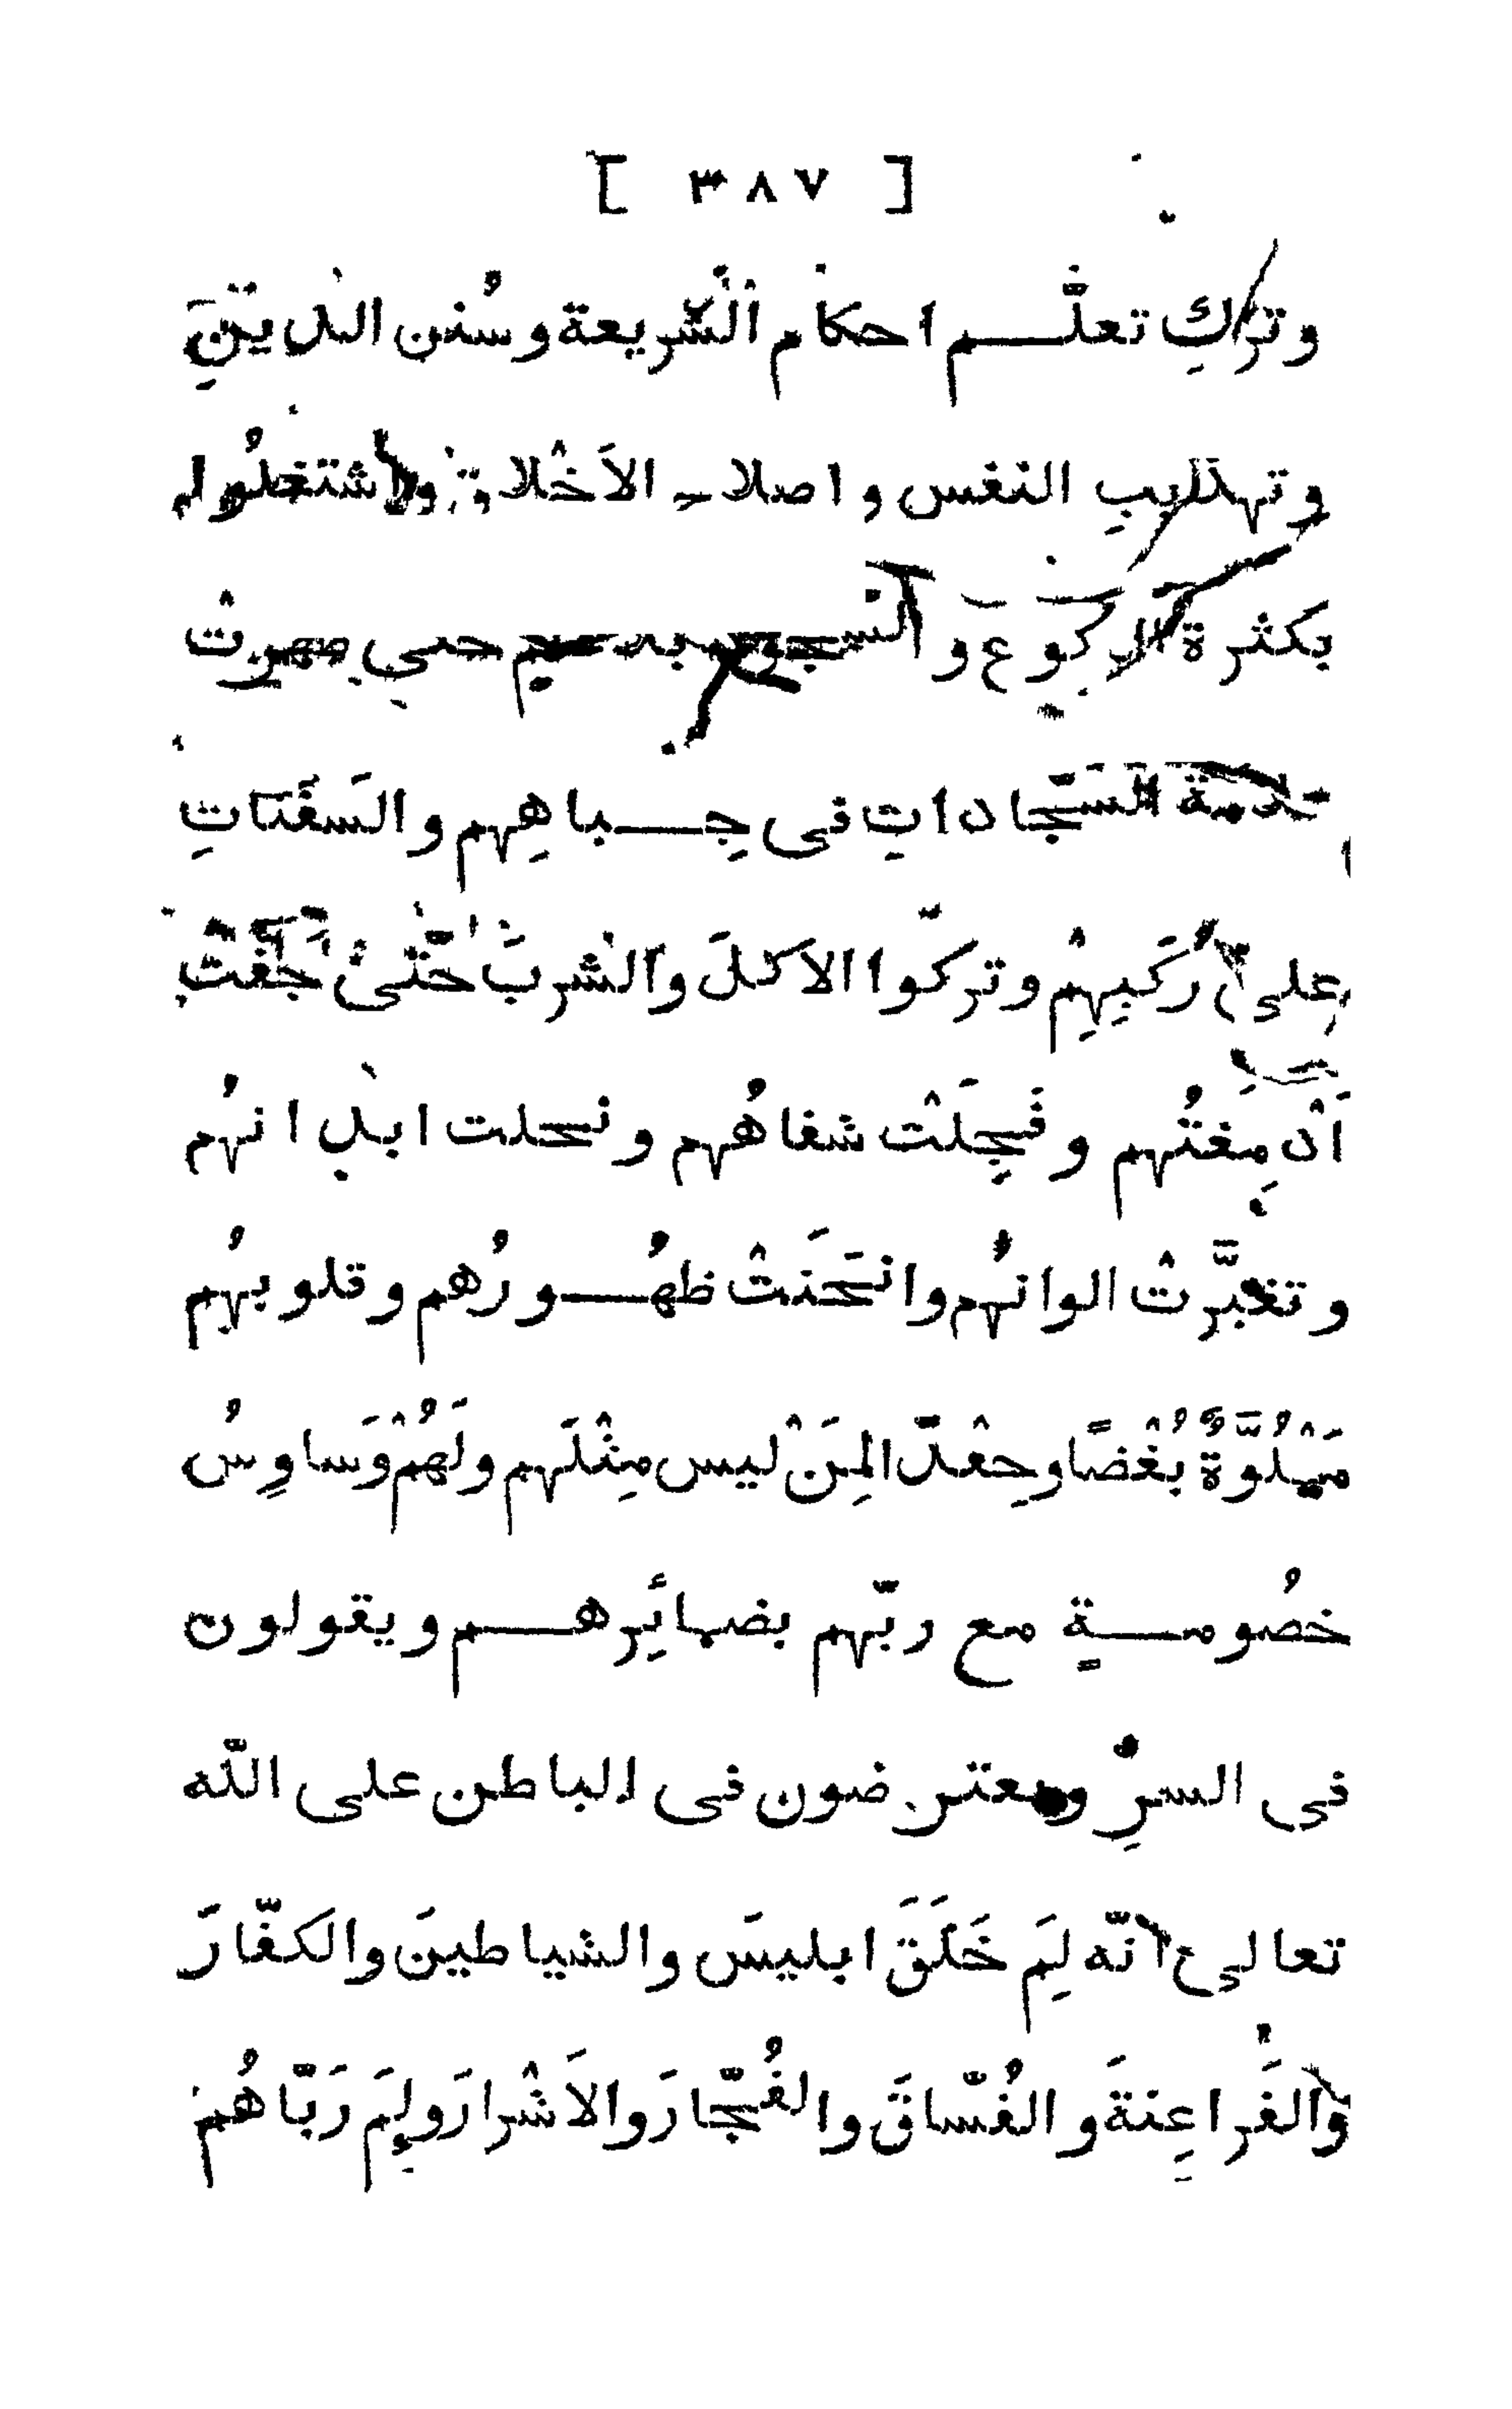 [ ٣٨٧ ]
وترك تعلّم احكام الشريعة وسُنن الدين
وتهذيبِ النفس واصلاح الاَخْلاق واشتغلُوا
بكثرة الركوع والسجود حتى
السَّجّادات فى جِباهِهم والسَفَناتِ
على رُكَبِهِم وتركوا الاكلَ والشربَ حَتّىٰ جَفّتْ
اَدْمِغتُهم وقَحِلَتْ شفاهُهم ونحلت ابدانُهم
وتغيَّرتْ الوانُهم وانحَنَتْ ظهُورُهم وقلوبهُم
مَمْلُوَّةٌ بُغْضًا وحِقْدًا لِمَنْ ليس مِثْلَهم ولَهُمْ وَساوِسُ
خصُومةٍ مع ربّهم بضمائِرهم ويقولون
فى السرِّ ويعترضون فى الباطن على اللّه
تعالى انّه لِمَ خَلَقَ ابليسَ والشياطينَ والكفّارَ
والفَراعِنةَ والفُسّاقَ والفُجّارَ والاَشْرارَ ولِمَ رَبّاهُم